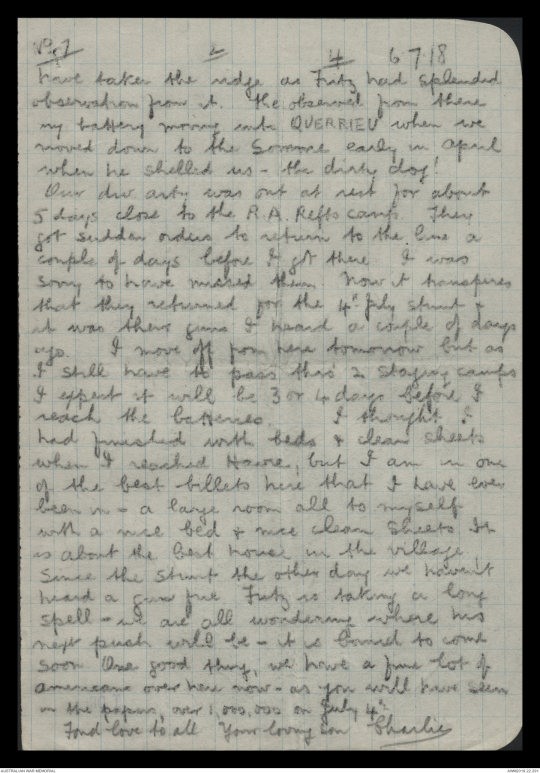 No. 7 2 4 6.7.18
have taken the ridge as Fritz had splendid
observation from it. He observed from there
my battery moving into QUERRIEU when we
moved down to the Somme early in April
when he shelled us - the dirty dog!
Our div arty was out at rest for about
5 days close to the R.A. Refts camp. They
got sudden orders to return to the line a
couple of days before I got there. I was
sorry to have missed them. Now it transpires
that they returned for the 4th July stunt &
it was their guns I heard a couple of days
ago. I move off from here tomorrow but as
I still have to pass thro' 2 staging camps
I expect it will be 3 or 4 days before I
reach the batteries. I thought I
had finished with beds & clean sheets
when I reached Havre, but I am in one
of the best billets here that I have ever
been in - a large room all to myself
with a nice bed & nice clean sheets It
is about the best house in the village.
Since the stunt the other day we haven't
heard a gun fire Fritz is taking a long
spell - we are all wondering where his
next push will be - it is bound to come
soon One good thing, we have a fine lot of
americans over here now - as you will have seen
in the papers, over 1,000,000 on July 4th
Fond love to all Your loving son Charlie
AUSTRALIAN WAR MEMORIAL